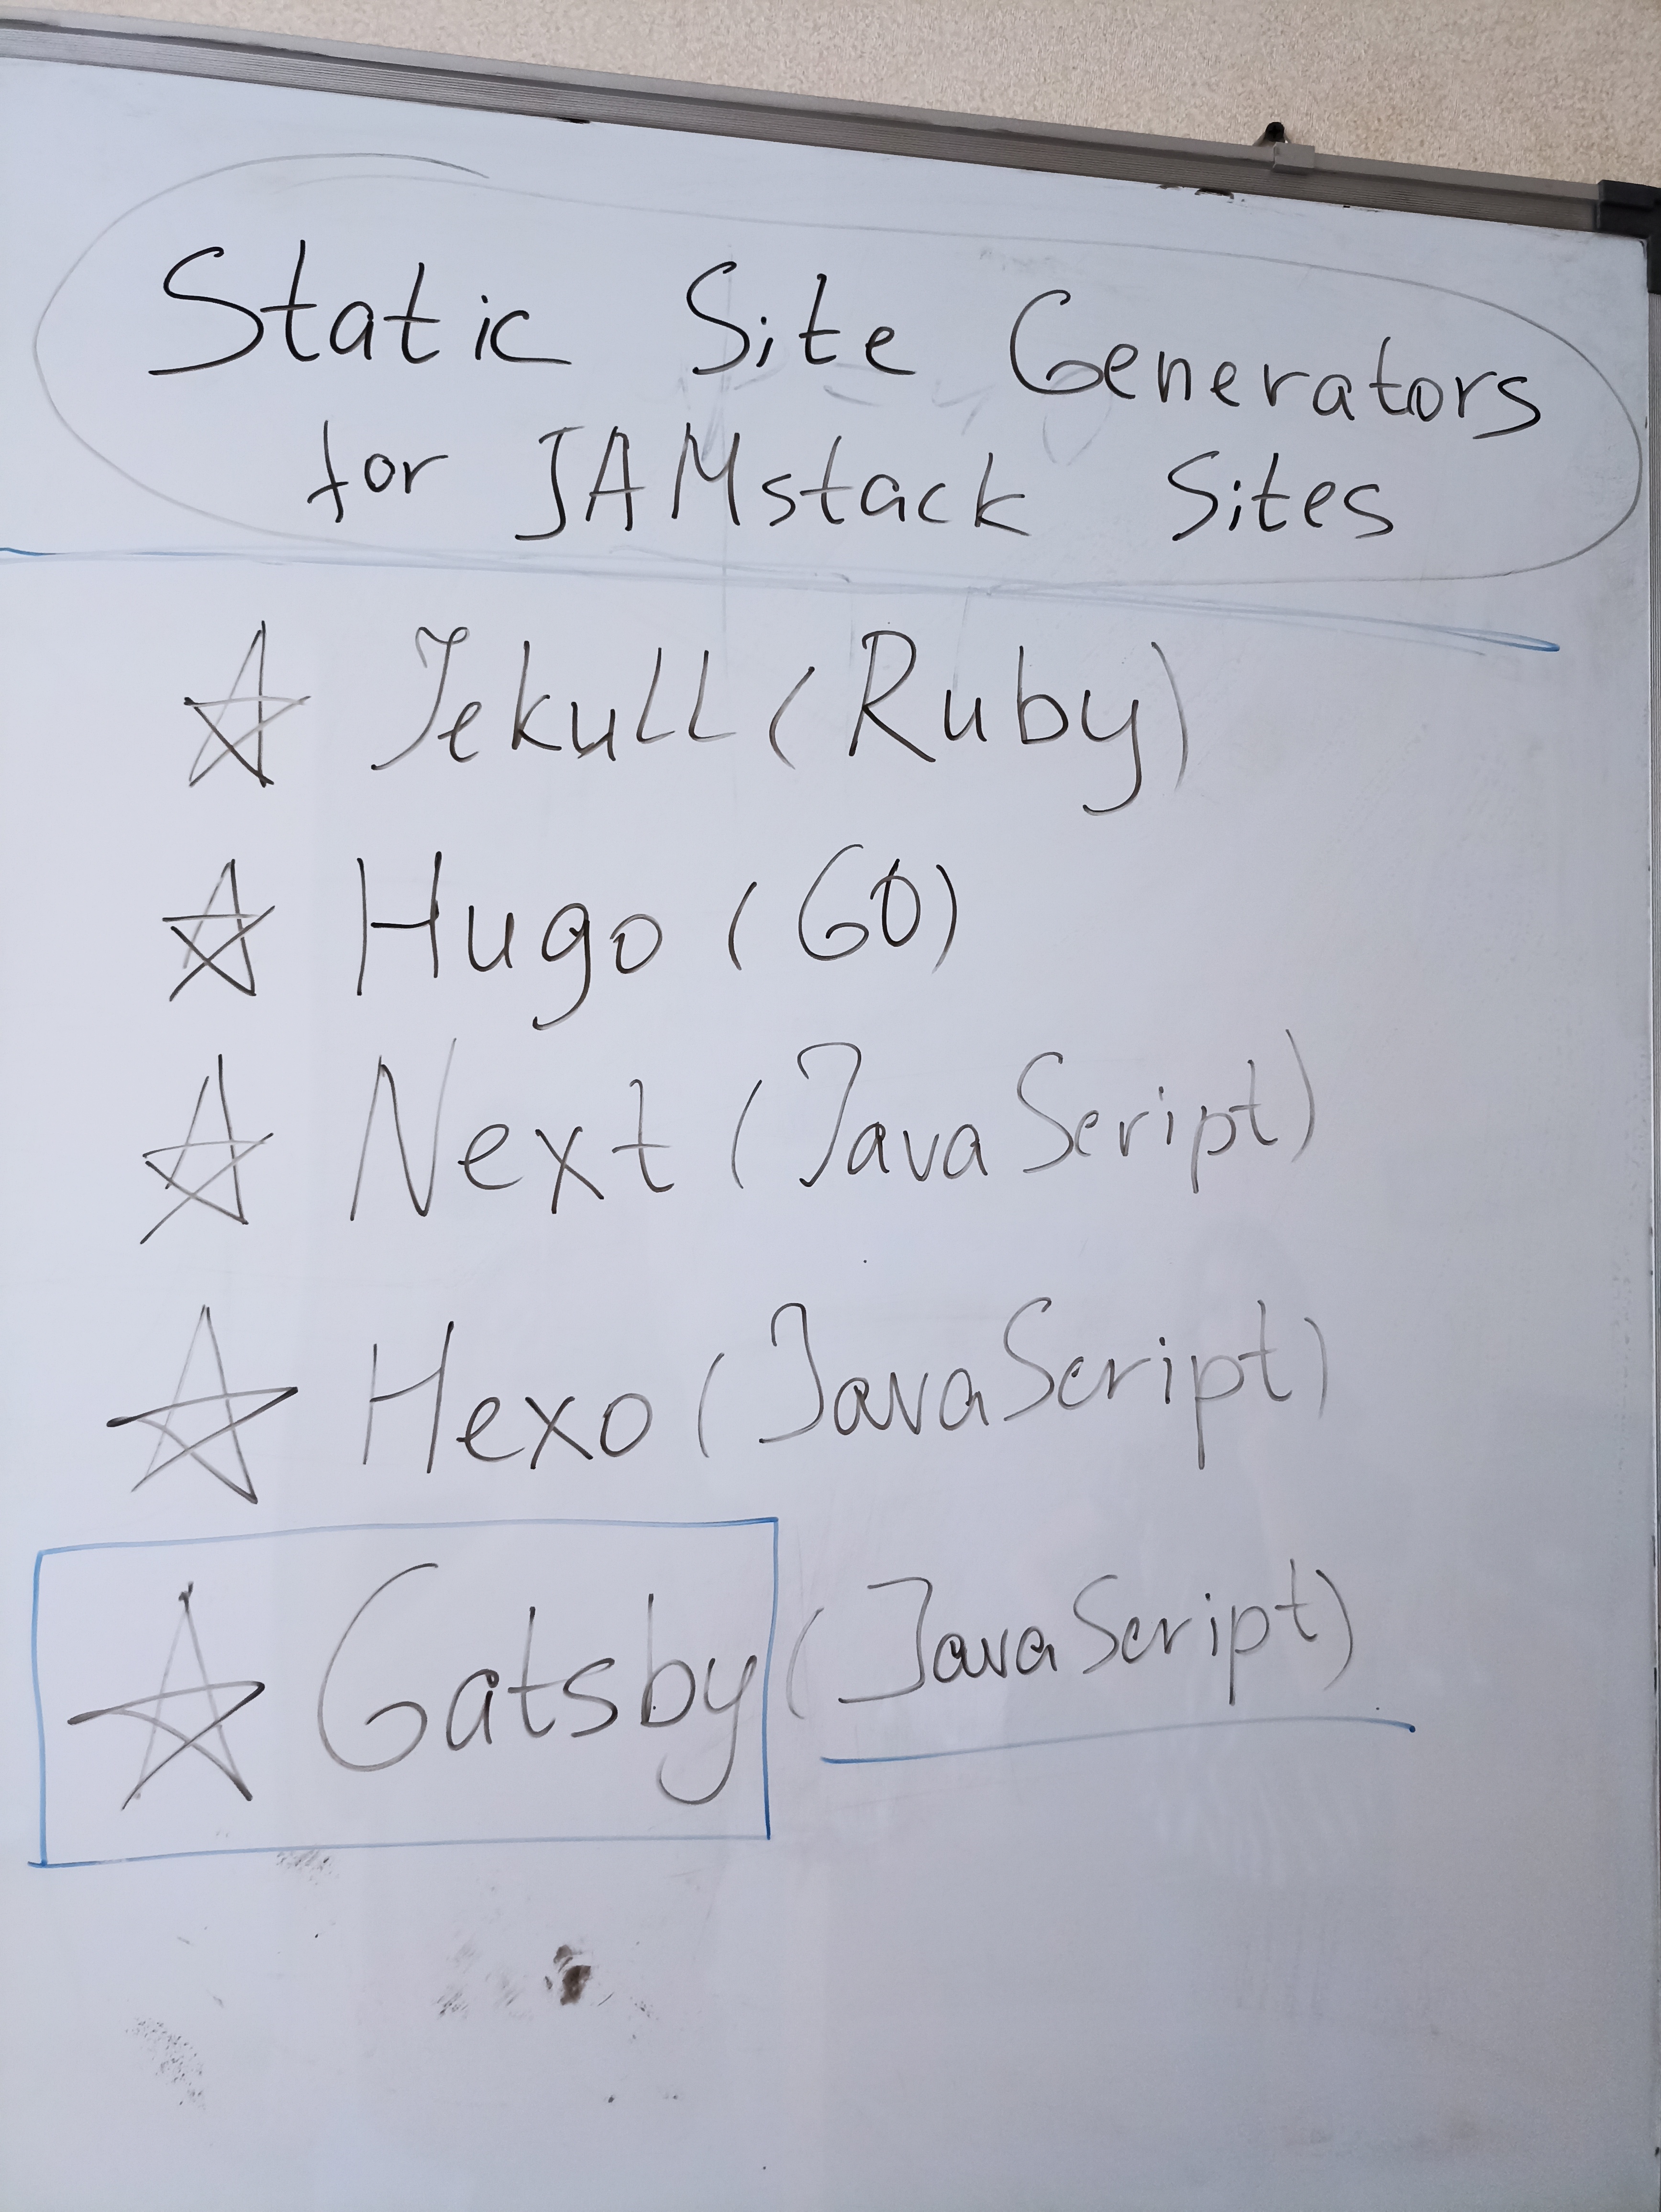 Static Site Generators
for JAMstack Sites
☆ Jekull (Ruby)
☆ Hugo (GO)
☆ Next (JavaScript)
☆ Hexo (JavaScript)
☆ Gatsby (JavaScript)